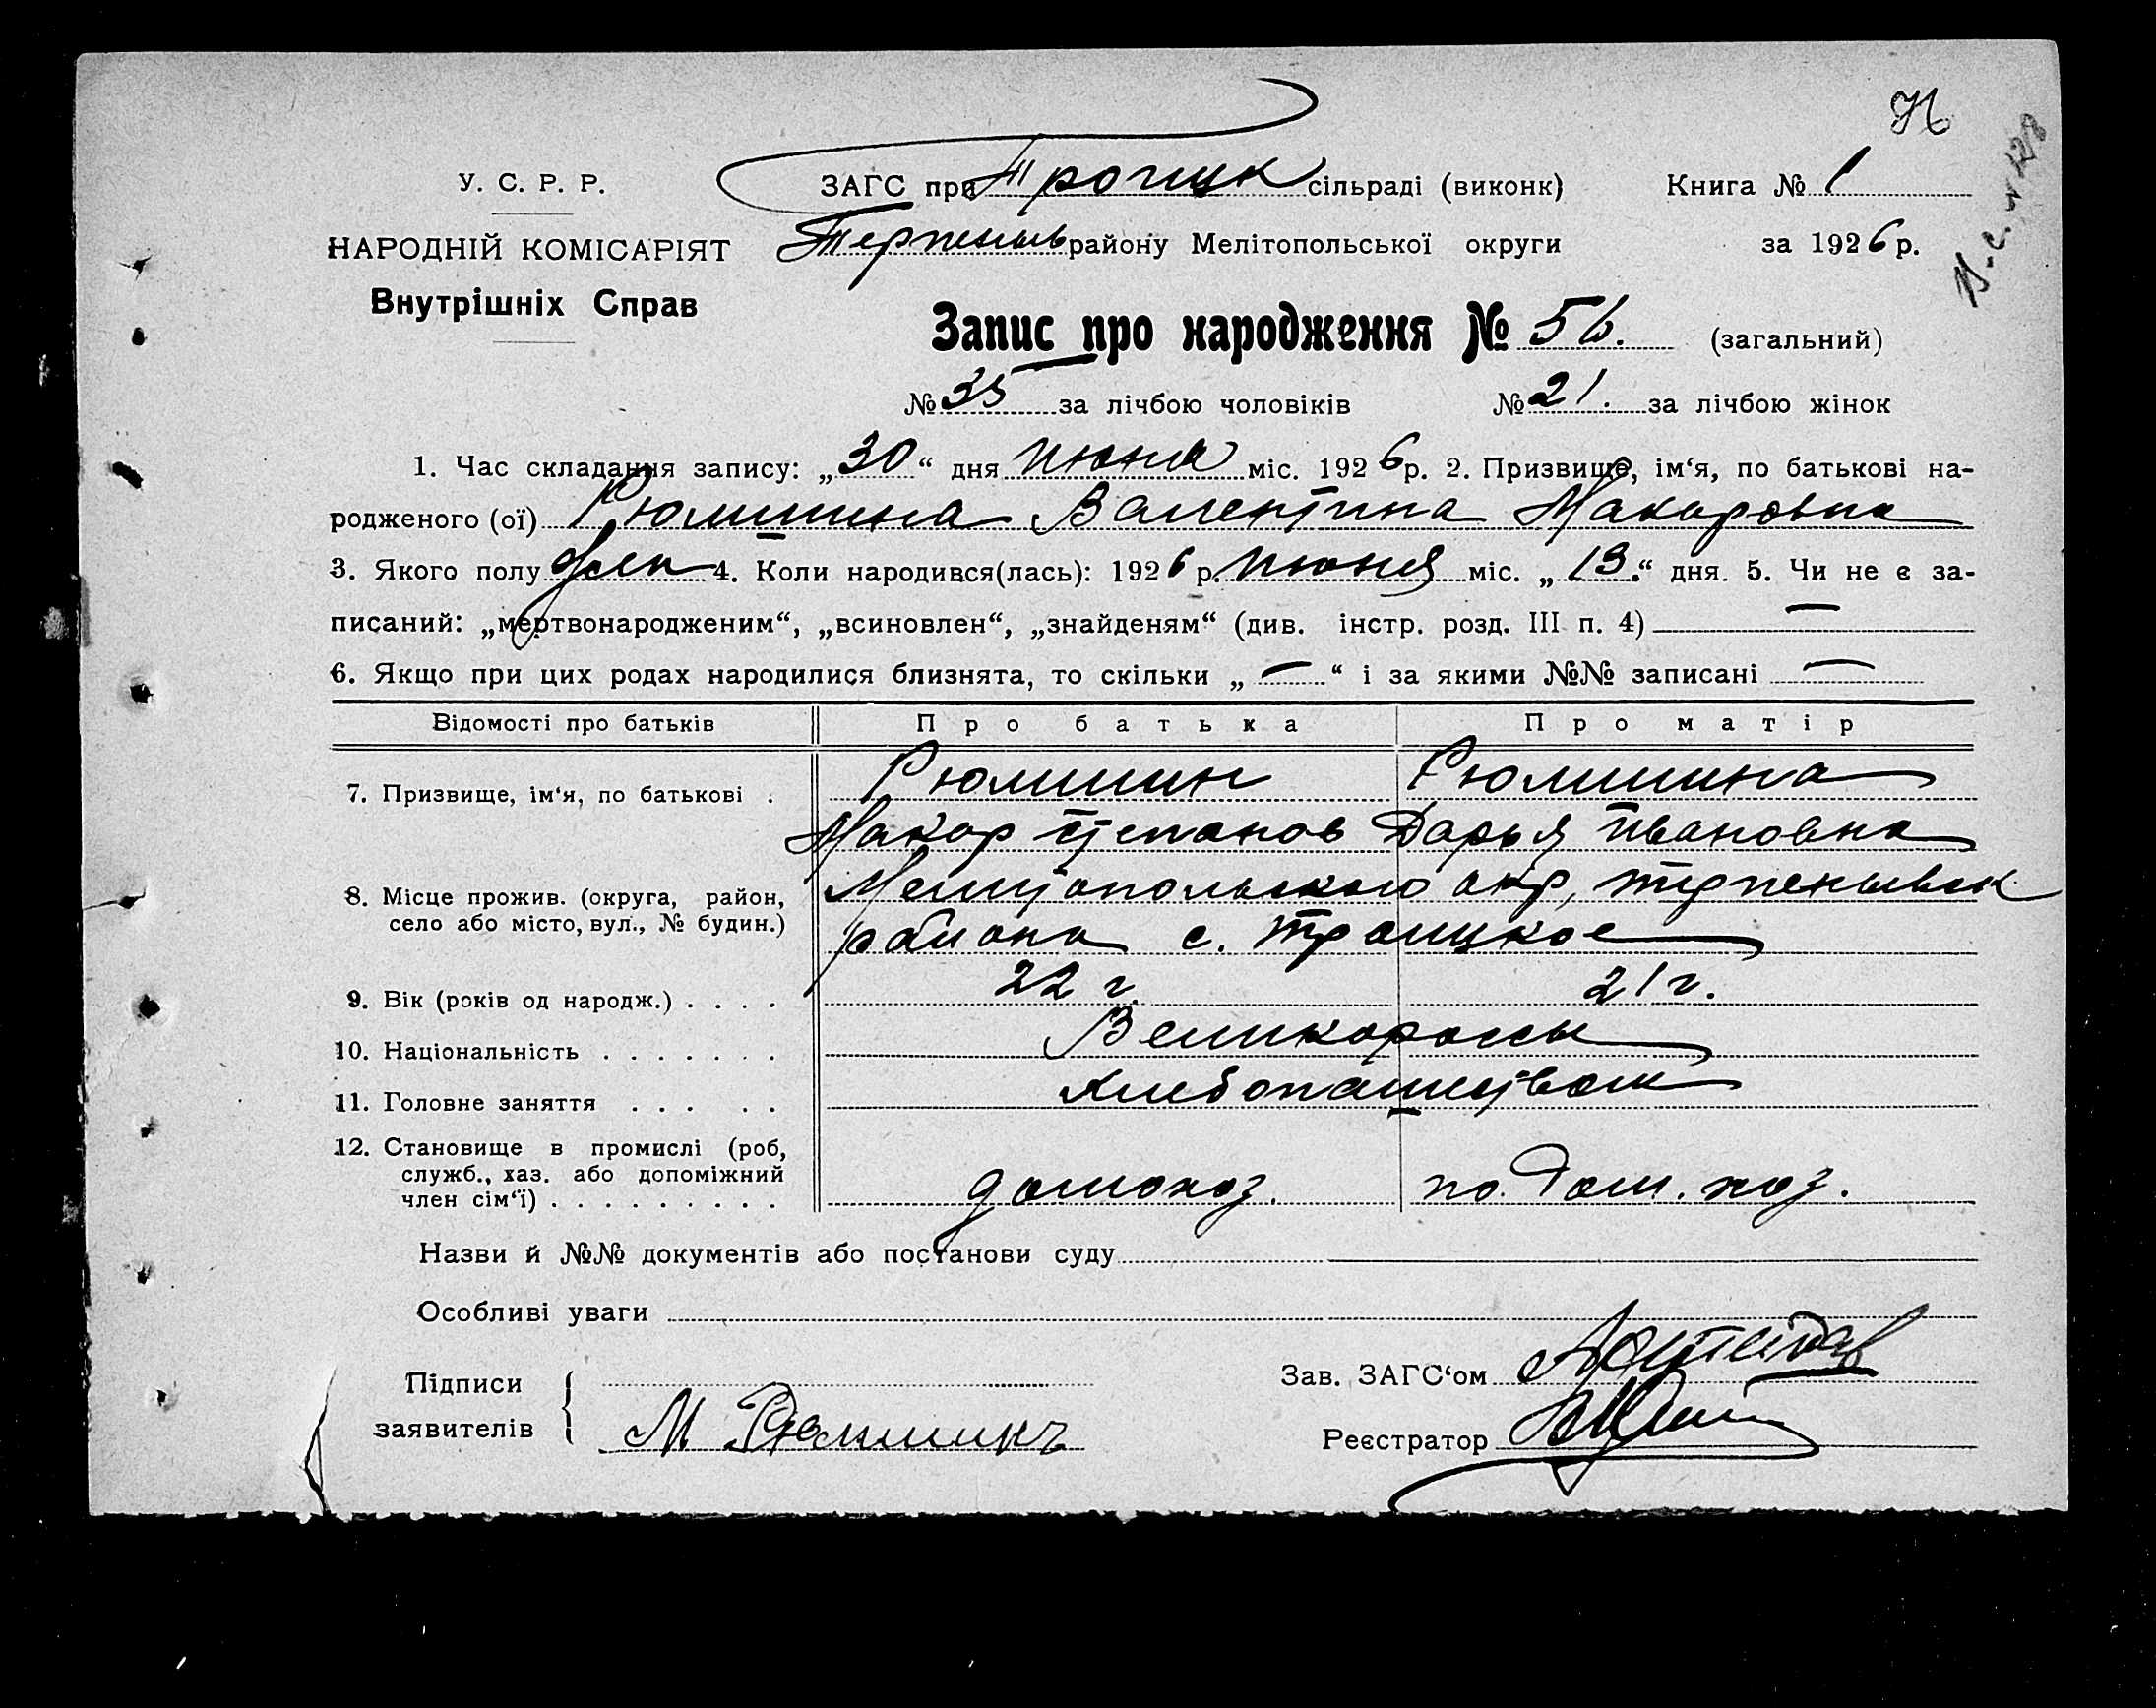 У. С. Р. Р.
НАРОДНІЙ КОМІСАРІЯТ
Внутрішніх Справ
ЗАГС при Троицк сільраді (виконк) Книга № 1
Терпеньев району Мелітопольської округи за 1926 р.
Запис про народження № 56. (загальний)
№ 35 за лічбою чоловіків № 21. за лічбою жінок
1. Час складання запису: „30“ дня июня міс. 1926 р. 2. Призвище, ім‘я, по батькові на-
родженого (ої) Рюмшина Валентина Макаровна
3. Якого полу жен 4. Коли народився(лась): 1926 р. июня міс. „13.“ дня. 5. Чи не є за-
писаний: „мертвонародженим“, „всиновлен“, „знайденям“ (див. інстр. розд. III п. 4) —
6. Якщо при цих родах народилися близнята, то скільки „—“ і за якими №№ записані —
Відомості про батьків Про батька Про матір
7. Призвище, ім‘я, по батькові . Рюмшин Рюмшина
Макар Степанов Дарья Ивановна
8. Місце прожив. (округа, район, село або місто, вул., № будин.) Мелитопольского окр, терпеньевск
района с. Троицкое
9. Вік (років од народж.) . . . . 22 г. 21 г.
10. Національність . . . . . . . Великороссы
11. Головне заняття . . . . . Хлебопашеством
12. Становище в промислі (роб, служб., хаз. або допоміжний член сім‘ї) . . . . . . . . . домохоз. по дом. хоз.
Назви й №№ документів або постанови суду
Особливі уваги
Підписи заявителів М Рюмшинъ
Зав. ЗАГС‘ом
Реєстратор